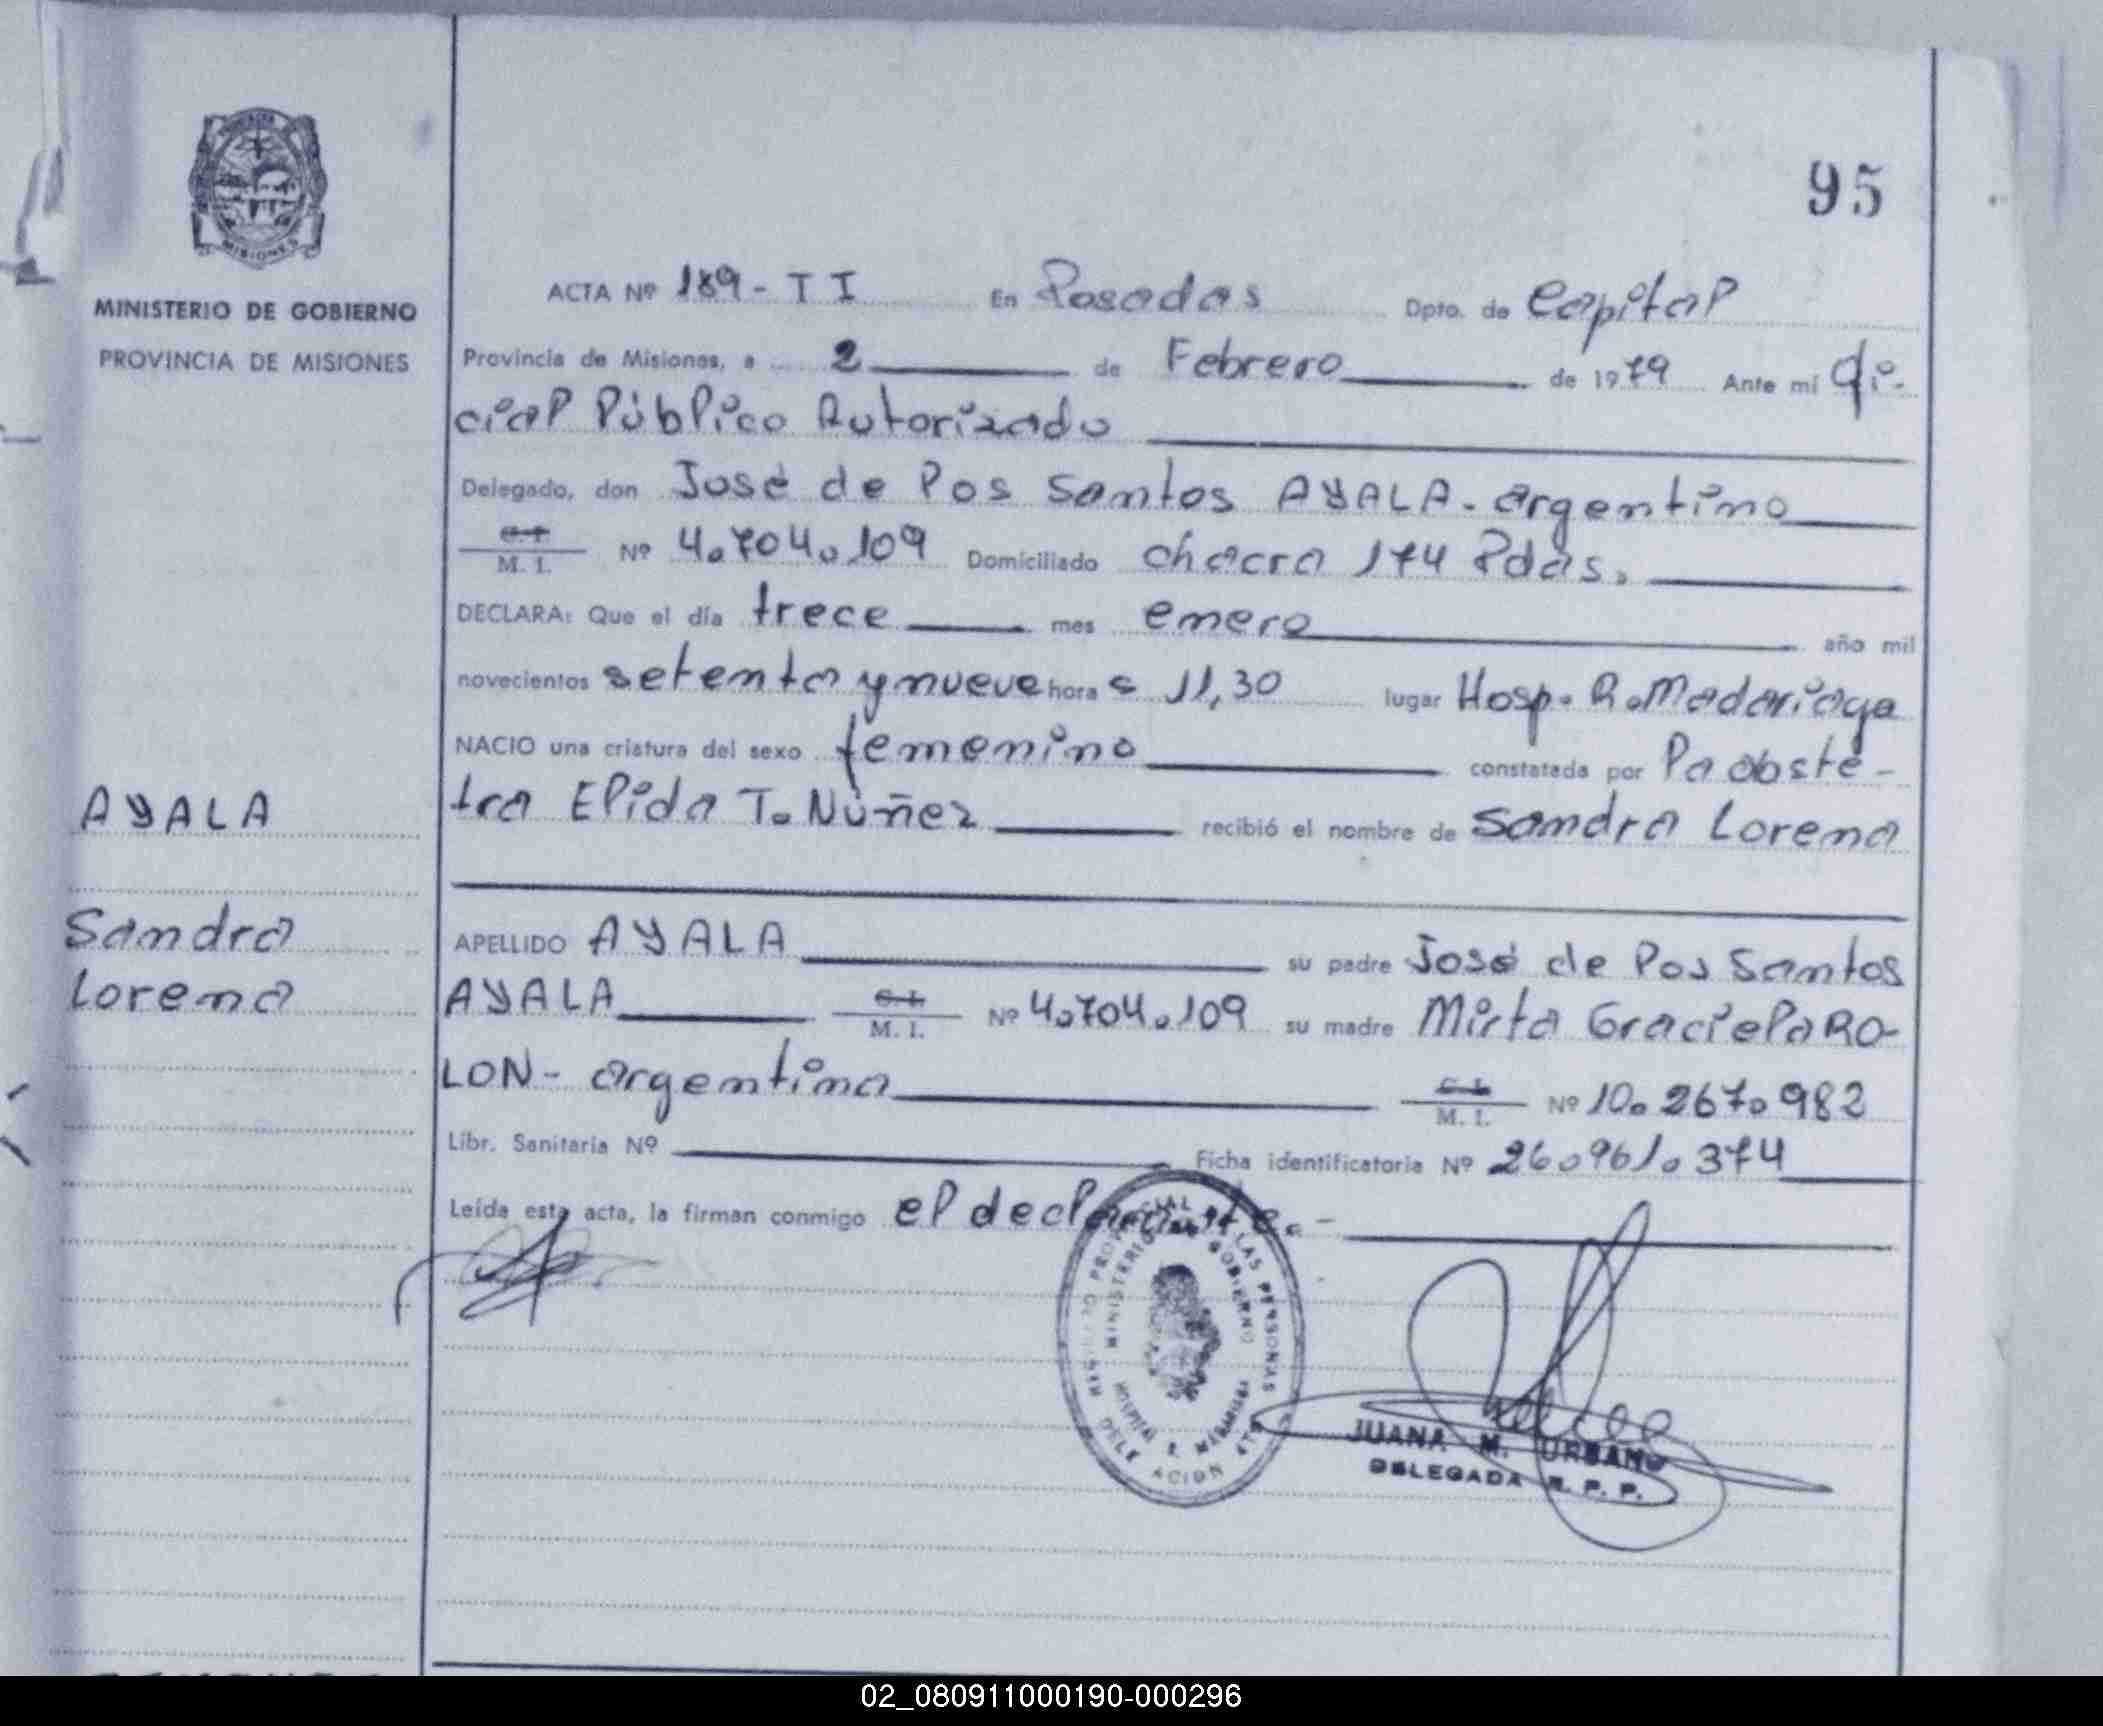 95
MISIONES
MINISTERIO DE GOBIERNO
PROVINCIA DE MISIONES
ACTA Nº 189-TI En Posadas Dpto. de Capital
Provincia de Misiones, a 2 de Febrero de 1979 Ante mí Ofi-
cial Público Autorizado
Delegado, don José de los Santos AYALA-argentino
C.I. M. I. Nº 4.704.109 Domiciliado chacra 174 Pdas.
DECLARA: Que el día trece mes enero año mil
novecientos setenta y nueve hora s 11,30 lugar Hosp. R. Madariaga
NACIO una criatura del sexo femenino constatada por la obsté-
tra Elida T. Núñez recibió el nombre de Sandra Lorena
AYALA
Sandra
Lorena
APELLIDO AYALA su padre José de los Santos
AYALA C.I. M. I. Nº 4.704.109 su madre Mirta Graciela RO-
LON- argentina C.I. M. I. Nº 10.267.982
Libr. Sanitaria Nº Ficha identificatoria Nº 26.961.374
Leída esta acta, la firman conmigo el declarante.-
MINISTERIO DE GOBIERNO
LAS PERSONAS
HOSPITAL R. MADARIAGA
DELEGACION
JUANA M. URBANO
DELEGADA R. P. P.
02_080911000190-000296